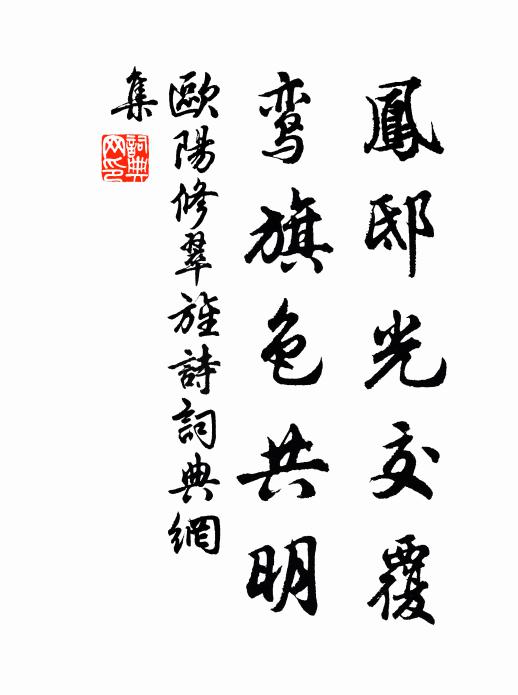 鳳邸光交覆
鸾旗色共明
歐陽修翠旌詩詞典網
集
詞典網印